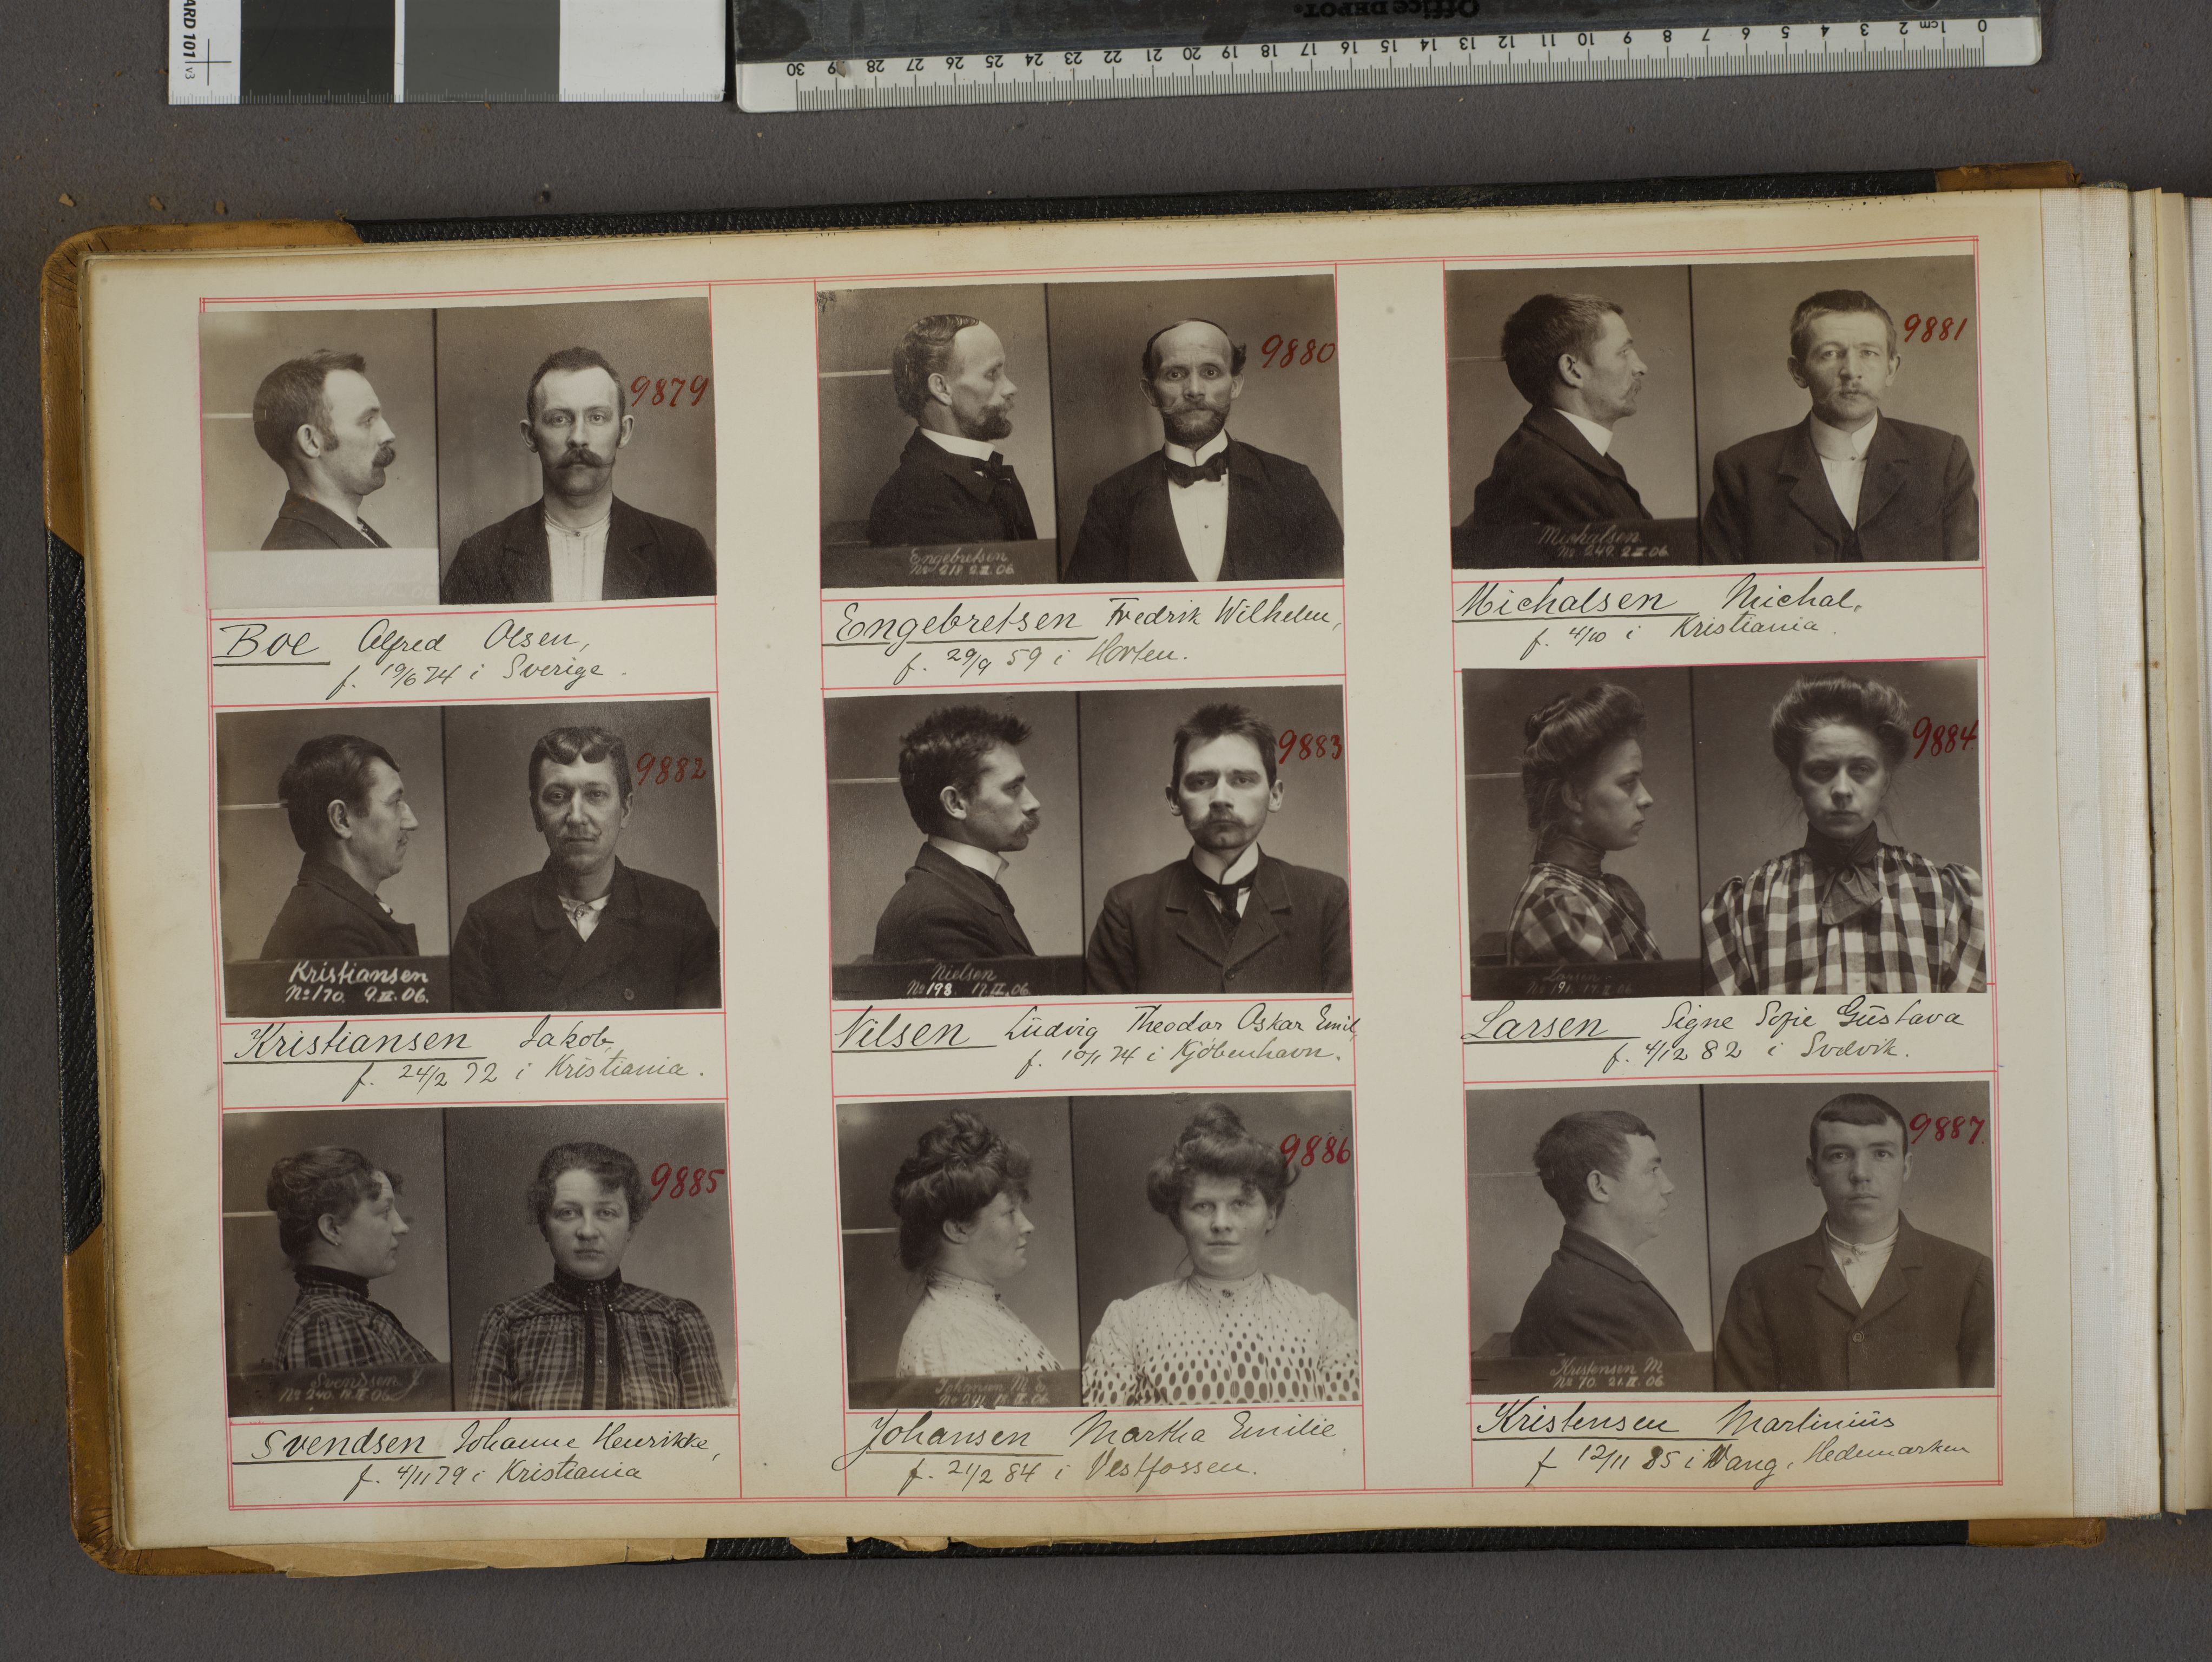 ARD 101 v3
Office DEPOT
0 1cm 2 3 4 5 6 7 8 9 10 11 12 13 14 15 16 17 18 19 20 21 22 23 24 25 26 27 28 29 30
9879
Boe Alfred Olsen,
f. 19/6 74 i Sverige.
9880
Engebretsen
No 218. 2.III.06.
Engebretsen Fredrik Wilhelm,
f. 29/9 59 i Horten.
9881
Michalsen
No 249. 2.III.06.
Michalsen Michal,
f. 4/10 i Kristiania.
9882
Kristiansen
No 170. 9.II.06.
Kristiansen Jakob,
f. 24/2 72 i Kristiania.
9883
Nielsen
No 198. 17.II.06.
Nilsen Ludvig Theodor Oskar Emil,
f. 10/1 74 i Kjöbenhavn.
9884
Larsen
No 191. 17.II.06
Larsen Signe Sofie Gustava
f. 4/12 82 i Svelvik.
9885
Svendsen J.
No 240. 19.II.06
Svendsen Johanne Henrikke,
f. 4/11 79 i Kristiania
9886
Johansen M. E.
No 241. 18.II.06
Johansen Martha Emilie
f. 21/2 84 i Vestfossen.
9887.
Kristensen M
No 70. 21.II.06.
Kristensen Martinius
f 12/11 85 i Vang, Hedemarken